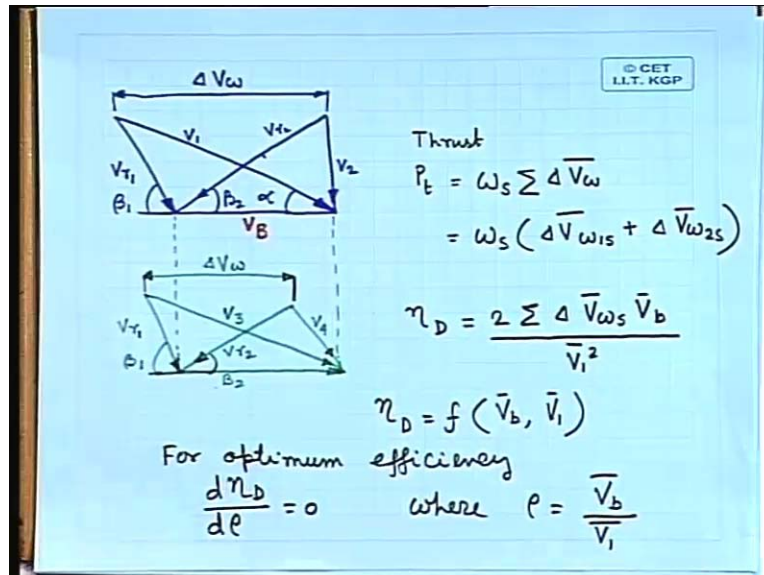 © CET
I.I.T. KGP
Δ Vω
V₁
Vr₂
Vr₁
V₂
β₁
β₂
α
V_B
Δ Vω
Vr₁
V₃
V₄
β₁
Vr₂
β₂
Thrust
P_t = ω_s Σ Δ V̄ω
= ω_s ( Δ V̄ω₁s + Δ V̄ω₂s )
η_D = 2 Σ Δ V̄ωs V̄b / V̄₁²
η_D = f ( V̄b, V̄₁ )
For optimum efficiency
dη_D / dρ = 0 where ρ = V̄b / V̄₁